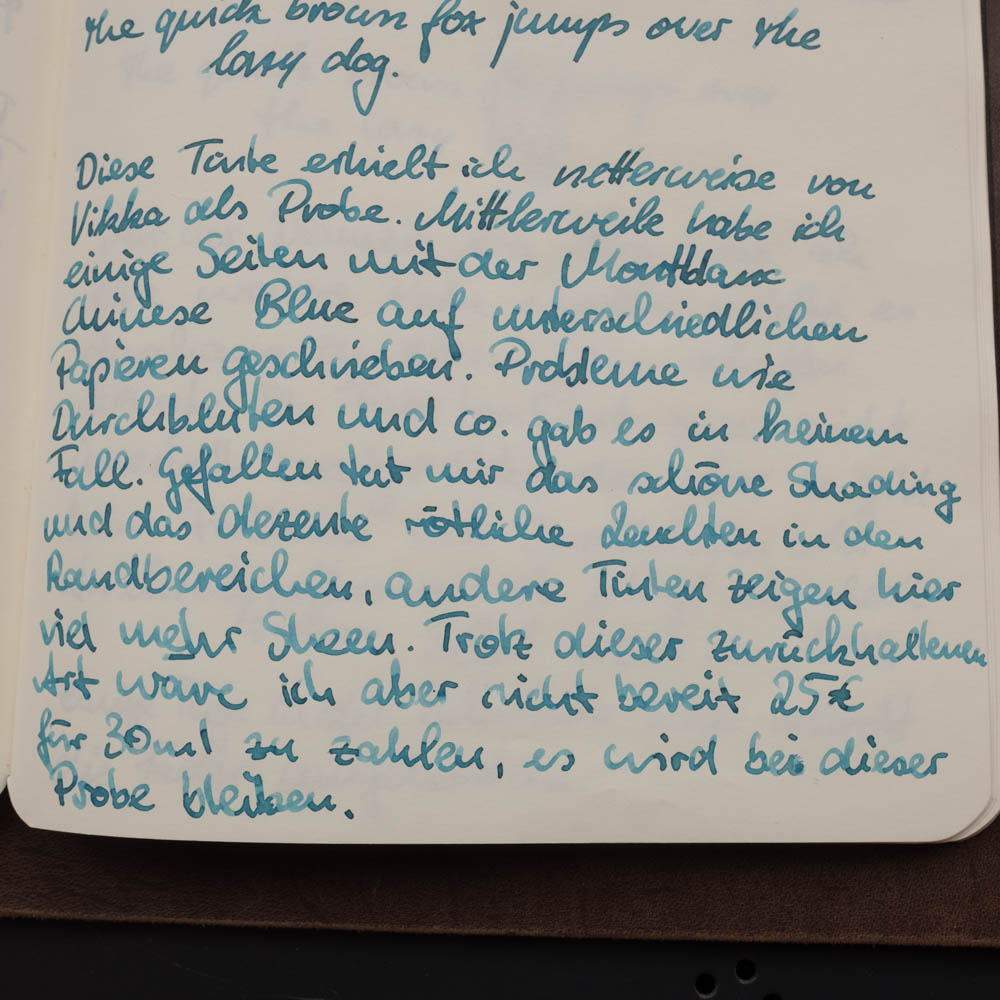 the quick brown fox jumps over the
lazy dog.
Diese Tinte erhielt ich netterweise von
Vikka als Probe. Mittlerweile habe ich
einige Seiten mit der Montblanc
Chinese Blue auf unterschiedlichen
Papieren geschrieben. Probleme wie
Durchbluten und co. gab es in keinem
Fall. Gefallen tut mir das schöne Shading
und das dezente rötliche Leuchten in den
Randbereichen, andere Tinten zeigen hier
viel mehr Sheen. Trotz dieser zurückhaltenen
Art wäre ich aber nicht bereit 25€
für 30ml zu zahlen, es wird bei dieser
Probe bleiben.